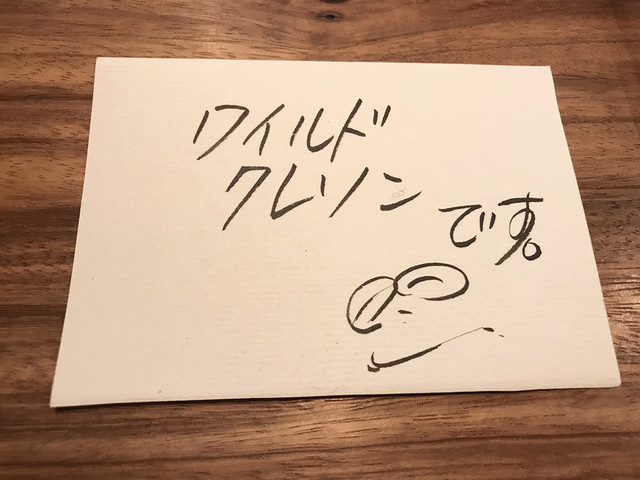 ワイルド
クレソン
です。